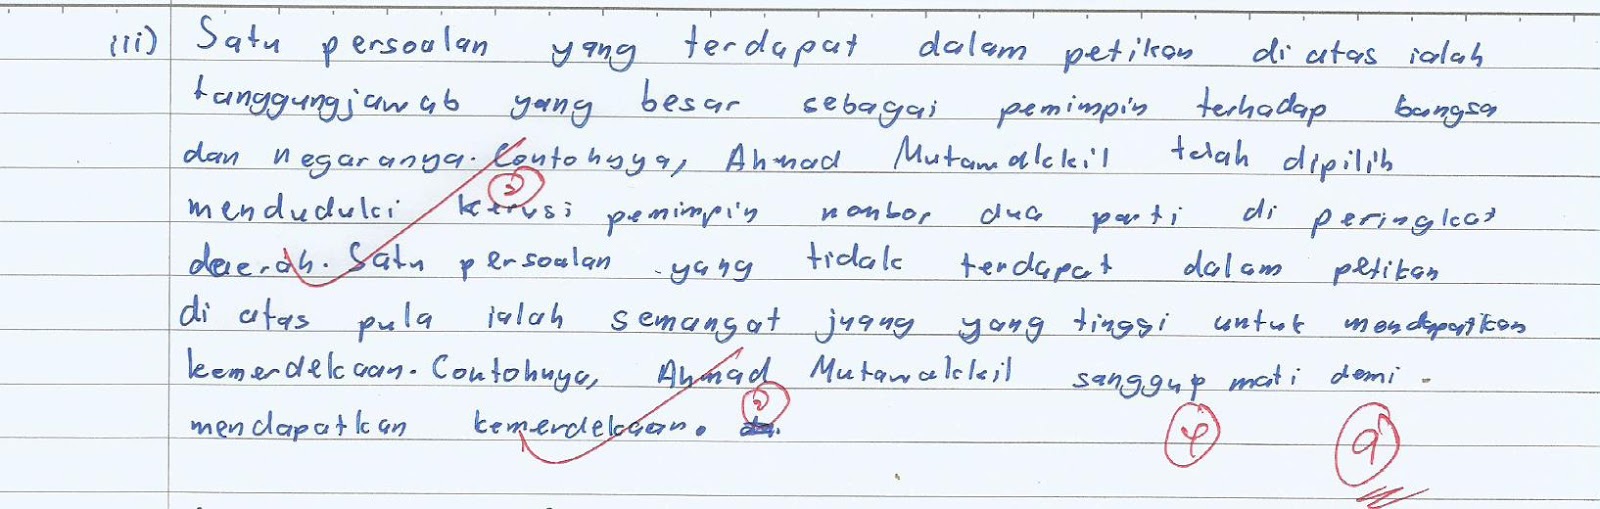 iii) Satu persoalan yang terdapat dalam petikan di atas ialah
tanggungjawab yang besar sebagai pemimpin terhadap bangsa
dan negaranya. Contohnya, Ahmad Mutawakkil telah dipilih
2
menduduki kerusi pemimpin nombor dua parti di peringkat
daerah. Satu persoalan yang tidak terdapat dalam petikan
di atas pula ialah semangat juang yang tinggi untuk mendapatkan
kemerdekaan. Contohnya, Ahmad Mutawakkil sanggup mati demi
2
mendapatkan kemerdekaan.
4 9